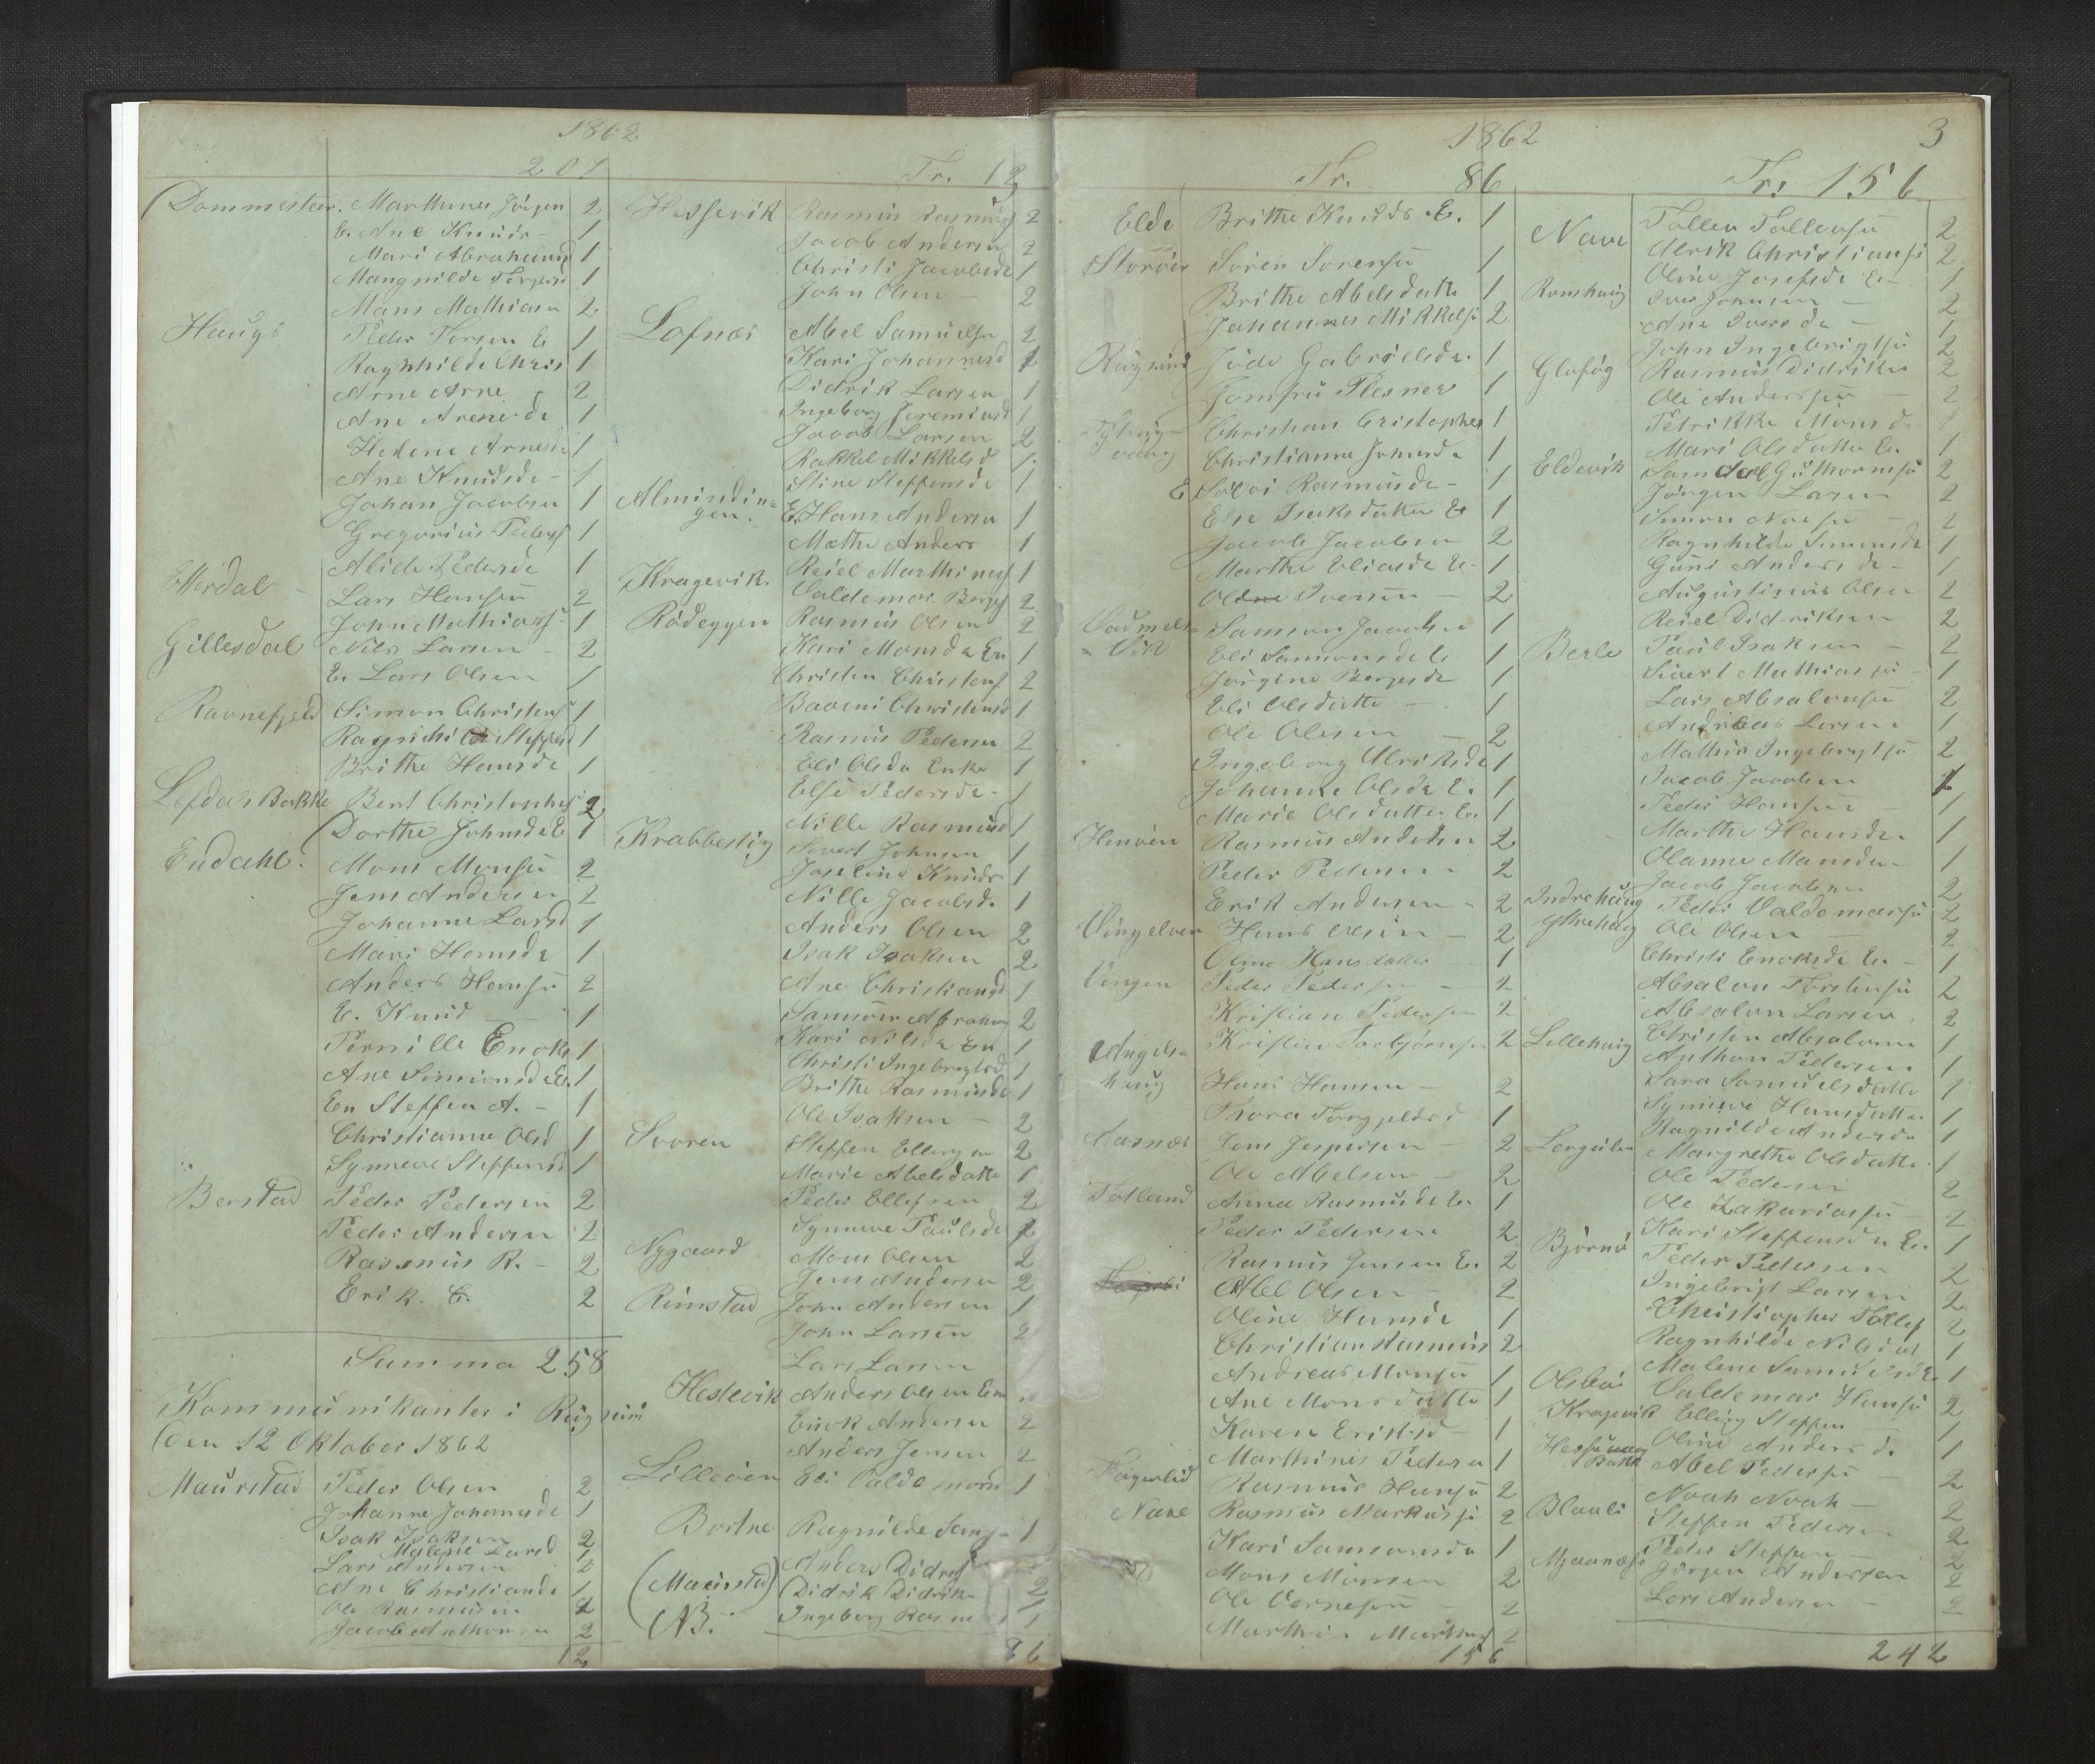 1862
207
Dommesteen. Marthinus Jörgen 2
E. Ane Knuds - 1
Mari Abrahamsd 1
Mangnilde Torgersd 1
Mans Mathiasen 2
Haugs Peder Torsen E 1
Ragnhilde Chris 1
Arne Arne 2
Ane Arne de 1
Helene Arnesd 1
Ane Knudsde - 1
Johan Jacobsen 1
Gregorius Peders 1
Alide Pedersde 1
Lars Hansen 2
John Mathias 1
Gillesdal Nils Larsen - 2
E. Lars Olsen 1
Ravnefjeld Simon Christens 1
Ragnhilde Steffensd 1
Brithe Hansde 1
Lefdals Bakke Bent Christophers 2
Dorthe Johnsde E 1
Endahl. Mons Monsen 2
Jens Andersen 2
Johanne Larsd 1
Mari Hansde 1
Anders Hansen 2
E. Knud - 1
Pernille Enoks 1
Ane Simonsde E. 1
En Steffen A. - 1
Christianne Olsd 1
Synneve Steffensd 1
Berstad Peder Pedersen 2
Peder Andersen 2
Rasmus R. - 2
Erik. E. 2
Summa 258
Kommunikanter i Rugsund
den 12 Oktober 1862
Maurstad Peder Olsen 2
Johanne Johannesde 1
Isak Isaksen 2
Malene Larsd 1
Lars Andersen 2
Ane Christiande 1
Ole Rasmussen 2
Jacob Anthonsen 2
12
Tr. 12
Hessevik Rasmus Rasmuss 2
Jacob Andersen 2
Christi Jacobsde 1
John Olsen - 2
Lofnæs Abel Samuelsen 2
Kari Johannesd 1
Didrik Larsen 1
Ingeborg Jeremiasd 1
Jacob Larsen 2
Rakkel Mikkelsd 1
Stine Steffensde 1
Almindin=
gen. E. Hans Andersen 1
Mathe Anders 1
Kragevik. Reiel Marthines 1
Valdemar Berges 2
Rödeggen Rasmus Olsen 2
Kari Monsde En 1
Christen Christens 2
Christensd 1
Rasmus Pedersen 2
Eli Olsda Enke 1
Else Pedersde - 1
Krabbestig Nille Rasmusd 1
Sivert Johnsen 1
Joseline Knuds 1
Nille Jacobsd. 1
Anders Olsen 2
Isak Isaksen 2
Ane Christiansd 1
Abraham 2
Kari Nilsde En 1
Christi Ingebrigtsd 1
Brithe Rasmusde 1
Ole Isaksen - 2
Svoren Steffen Ellingsen 2
Marie Abelsdatte 1
Peder Ellefsen 2
Synneve Paulsde 1
Nygaard Mons Olsen 2
Jens Andersen 2
Rimstad John Andersen 1
John Larsen 2
Lars Larsen
Hestevik Anders Olsen
Enok Andersen 2
Anders Jensen 2
Lilleöen Eli Valdemarsd 1
Bortne Ragnilde 1
(Maurstad) Anders Didres
Didrik Didriks 2
NB. Ingeborg Rasmu 1
86
1862 3
Tr. 86
Elde Brithe Knuds. E. 1
Storöen Sören Sörensen 1
Brithe Abelsdatte 1
Johannes Mikkelse 2
Rugsund Gabrielsde. 1
Jomfru Plesner 1
Christian Cristopher 1
Christianne Johnsde 1
Rasmusde - 1
Else Isaksdatter E 1
Jacob Jacobsen 2
Marthe Eliasde E - 1
Iversen - 2
Vadmels=
Vik Samson Jacobsen 1
Eli Samsonsde E 1
Jørgine Bergesde 1
Eli Olsdatte - 1
Ole Olesen - 2
Ingeborg Ulriksde 1
Johanne Olsde E. 1
Marie Olsdatter En 1
Henöen Rasmus Andersen 2
Peder Pedersen 2
Erik Andersen - 2
Vingelven Hans Olsen - 2
Oline Hansdatter 1
Vingen Peder Pedersen - 2
Kristian Pedersen 2
Angels=
haug Kristen Torbjörnsen 2
Hans Hansen - 2
Thora Torgjeldsd 1
Aarnæs Jens Jespersen - 2
Ole Abelsen - 2
Totland Anna Rasmusde E 1
Peder Pedersen 2
Rasmus Jensen E. 2
Abel Olsen - 2
Oline Hansde 1
Christian Rasmus 2
Andreas Monsen 1
Ane Monsdatte 1
Karen Eriksd - 1
Marthines Pedersen 1
Fagerlid Rasmus Hansen 2
Nave Rasmus Markusse 2
Kari Samsonsde 1
Mons Monsen 2
Ole 2
Marthi. Martins 2
156
Tr. 156
Nave Tollen Tollensen 2
Ulrik Christianse 2
Oline Josefsde E - 1
Ramshaug Iver Johnsen - 2
Ane Iversde - 1
John Ingebrigtse 2
Rasmus Didriksen 2
Ole Anderssen - 2
Petrikke Monsd. 1
Mari Olsdatter En 1
Eldevik Guthormse 2
Jørgen Larsen 2
Simon 2
Ragnhilde Simonsde 1
Guni Andersde - 1
Augustinus Olsen 2
Reiel Didriksen 2
Berle Paul Isaksen - 2
Sivert Mathiassen - 1
Lars Absalonsen 2
Andreas Larsen 1
Mathis Ingebrigtse 2
Jacob Jacobsen 1
Peder Hansen - 1
Marthe Hansde. 1
Olanne Mansde - 1
Jacob Jacobsen 2
Indrehaug Peder Valdemarse 2
Yttrehaug Ole Olsen - 2
Christi Enoksde En - 1
Absalon Torstense 2
Absalon Larsen 2
Lillehaug Christen Absalonsen 1
Anthon Pedersen 1
Sara Samuelsdatte 1
Synneve Hansdatter 1
Ragnilde Andersde 1
Lergulen Margrethe Olsdatte 1
Ole Pedersen 2
Ole Zakariassen - 2
Björnö Kari Steffensde En. 1
Peder Pedersen 2
Ingebrigt Larsen 2
Christiopher Tollef 2
Ragnhilde Nilsdat 1
Malene Samuelsde 1
Valdemar Hanse 2
Kragevik Elling Steffen - 1
Oline Andersde 1
Abel Pederse - 2
Blaali Noah Noah - 2
Steffen Pedersen 2
Peder Steffen - 2
Jörgen Andersen 2
Lars Andersen - 2
242